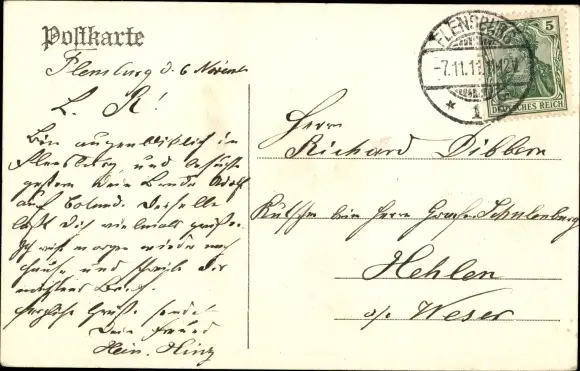 Postkarte
FLENSBURG
-7.11.11 11-12V
* 1
5
DEUTSCHES REICH
Flensburg d. 6 Novemb
L. R!
Bin augenblicklich in
Flensburg und besuchte
gestern Dein Bruder Adolf
auf Derselbe
läßt Dich vielmals grüßen.
Ich reise morgen wieder nach
Hause und schreibe Dir
nächstens Brief.
herzliche Grüße sendet
Dein Freund
Hein. Hinz
Herrn
Richard Dibbern
Kutscher bei Herrn Grafen Schulenburg
Hehlen
a/c Weser